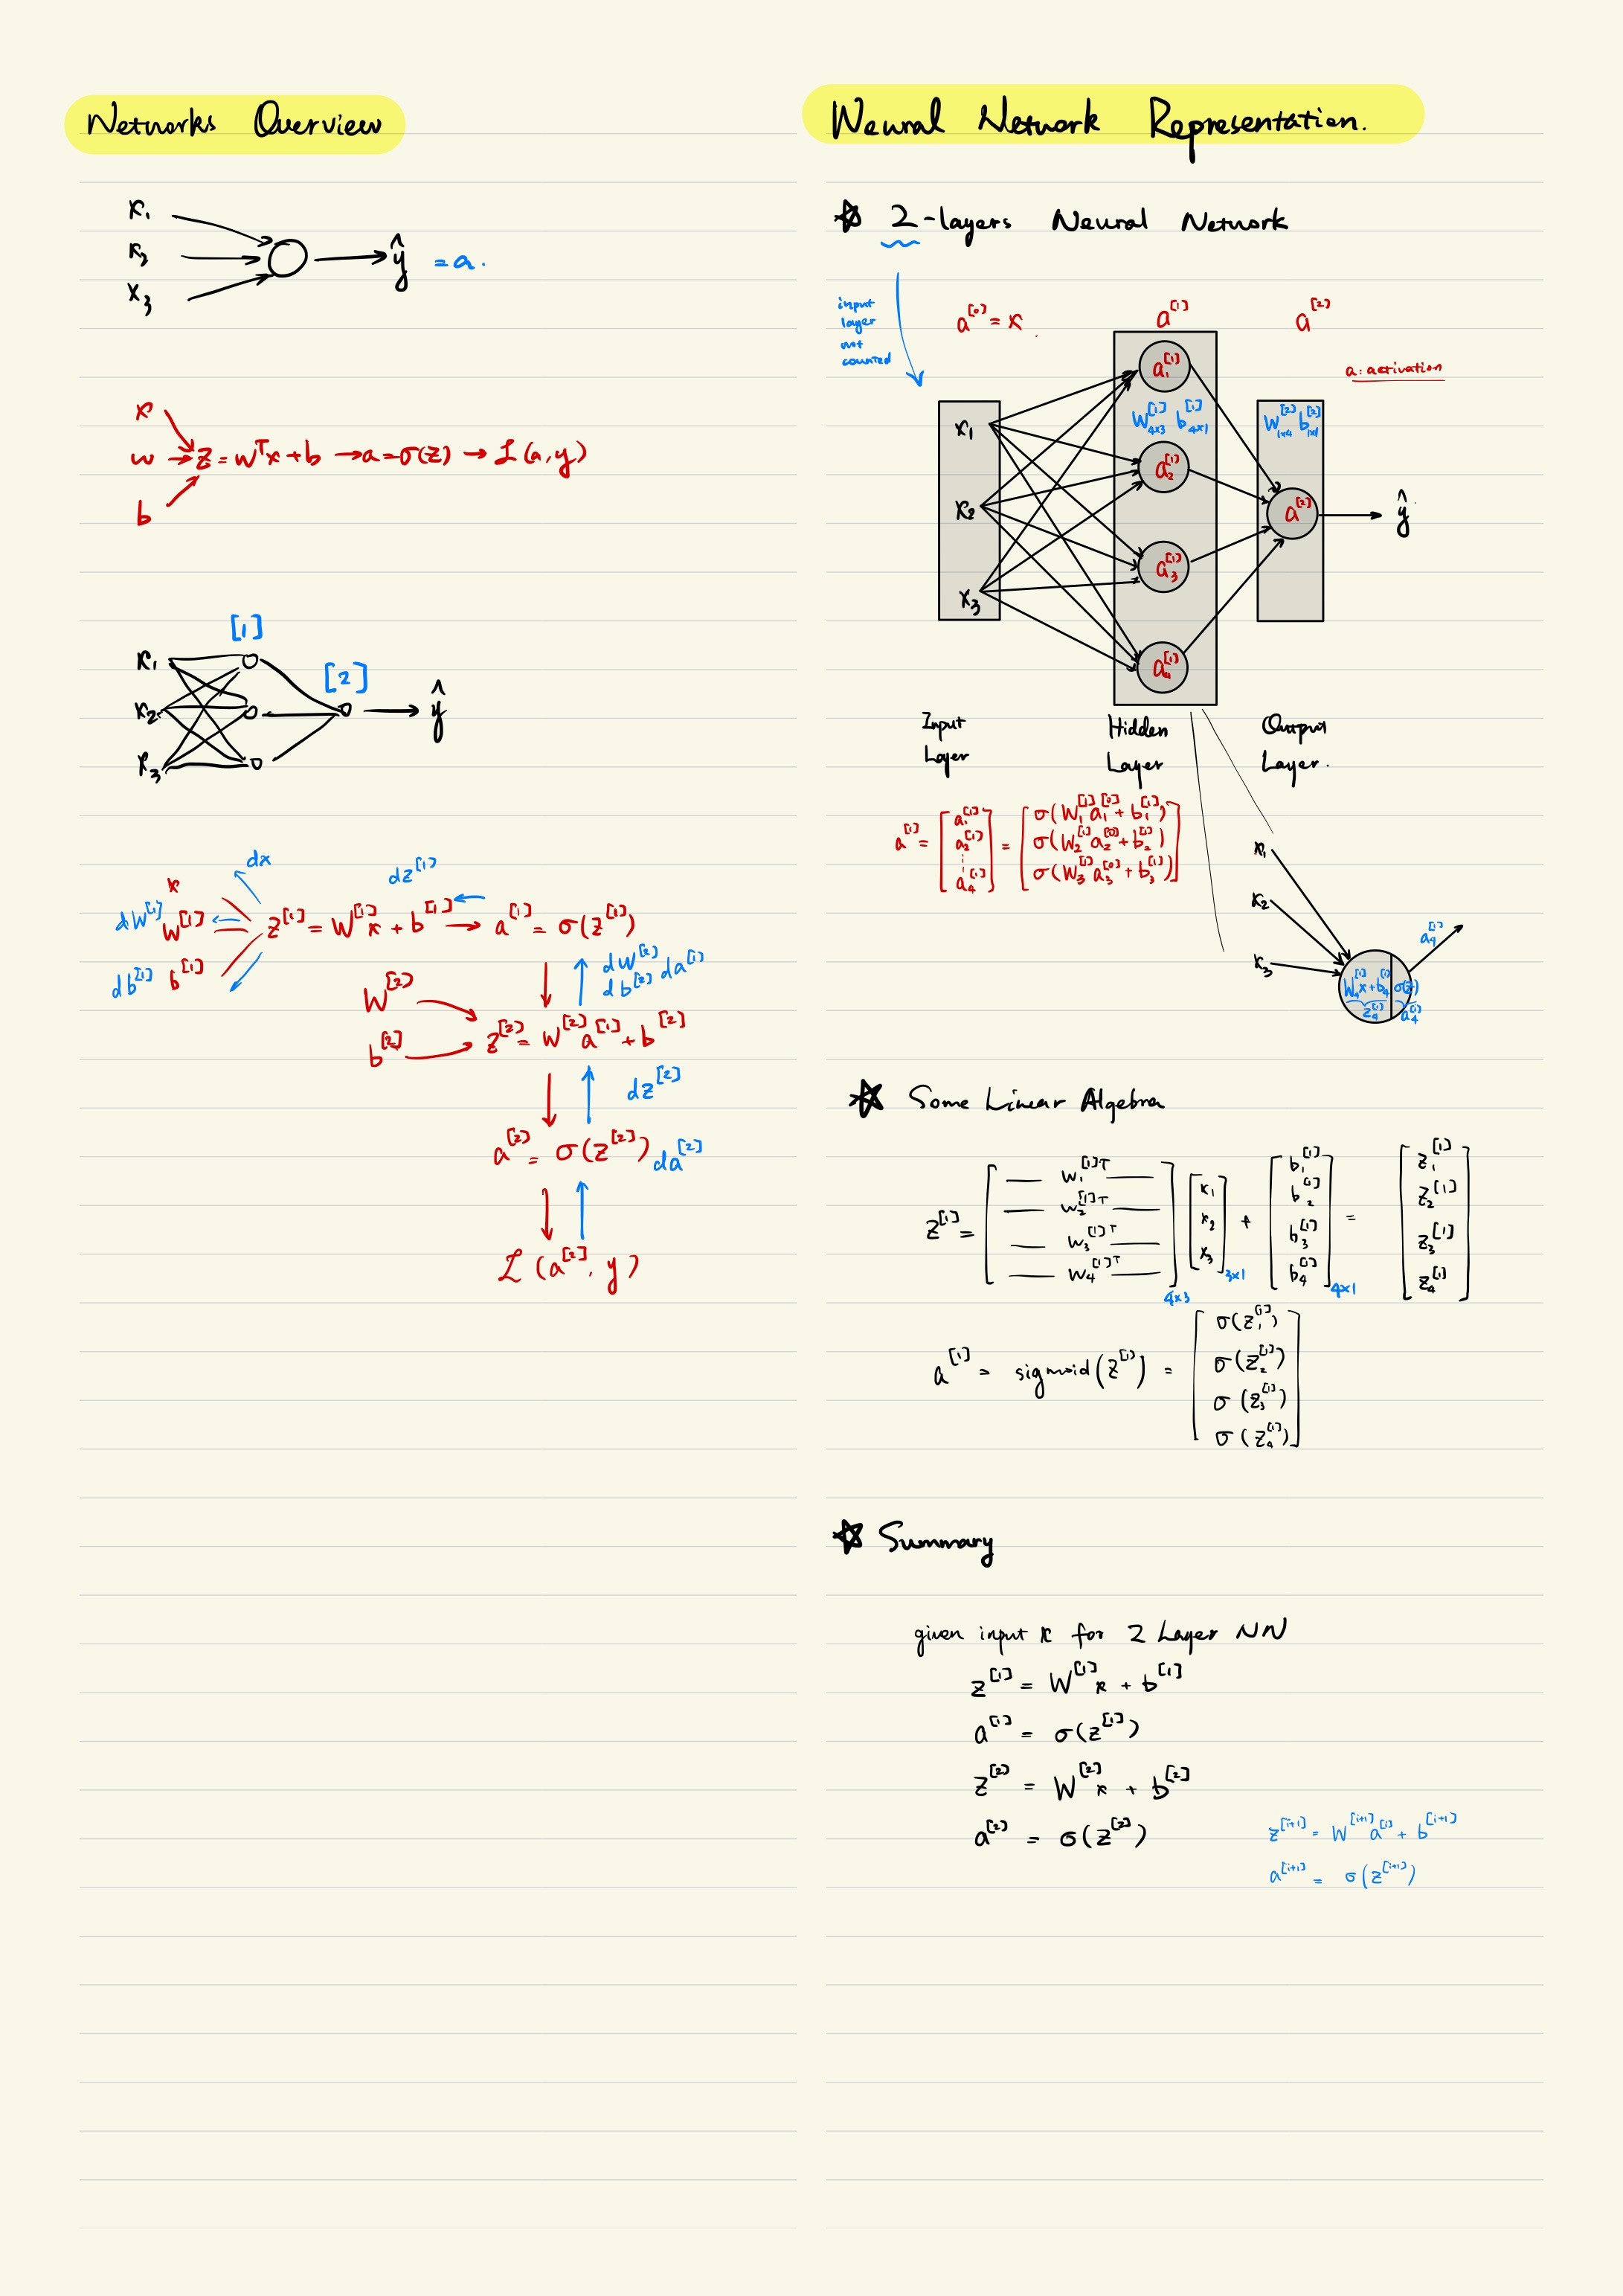 Networks Overview
x₁
x₂
x₃
ŷ = a.
x
w → z = wᵀx + b → a = σ(z) → ℒ(a, y)
b
[1]
[2]
x₁
x₂
x₃
ŷ
dx
dz^[1]
x
dW^[1] W^[1] z^[1] = W^[1]x + b^[1] → a^[1] = σ(z^[1])
db^[1] b^[1]
dW^[2]
db^[2] da^[1]
W^[2]
b^[2]
z^[2] = W^[2]a^[1] + b^[2]
dz^[2]
a^[2] = σ(z^[2]) da^[2]
ℒ(a^[2], y)
Neural Network Representation.
☆ 2-layers Neural Network
input
layer
not
counted
a^[0] = x
a^[1]
a^[2]
a: activation
a₁^[1]
W^[1]₄ₓ₃ b^[1]₄ₓ₁
W^[2]₁ₓ₄ b^[2]₁ₓ₁
x₁
a₂^[1]
x₂
a^[2]
ŷ
a₃^[1]
x₃
a₄^[1]
Input
Layer
Hidden
Layer
Output
Layer.
a^[1] = [a₁^[1] a₂^[1] ⋮ a₄^[1]] = [σ(W₁^[1]a₁^[0] + b₁^[1]) σ(W₂^[1]a₂^[0] + b₂^[1]) σ(W₃^[1]a₃^[0] + b₃^[1])]
x₁
x₂
x₃
a₄^[1]
W₄^[1]x + b₄^[1] σ(z)
z₄^[1] a₄^[1]
☆ Some Linear Algebra
z^[1] = [— w₁^[1]ᵀ — — w₂^[1]ᵀ — — w₃^[1]ᵀ — — w₄^[1]ᵀ —]4×3 [x₁ x₂ x₃]3×1 + [b₁^[1] b₂^[1] b₃^[1] b₄^[1]]4×1 = [z₁^[1] z₂^[1] z₃^[1] z₄^[1]]
a^[1] = sigmoid(z^[1]) = [σ(z₁^[1]) σ(z₂^[1]) σ(z₃^[1]) σ(z₄^[1])]
☆ Summary
given input x for 2 Layer NN
z^[1] = W^[1]x + b^[1]
a^[1] = σ(z^[1])
z^[2] = W^[2]x + b^[2]
a^[2] = σ(z^[2])
z^[i+1] = W^[i+1]a^[i] + b^[i+1]
a^[i+1] = σ(z^[i+1])